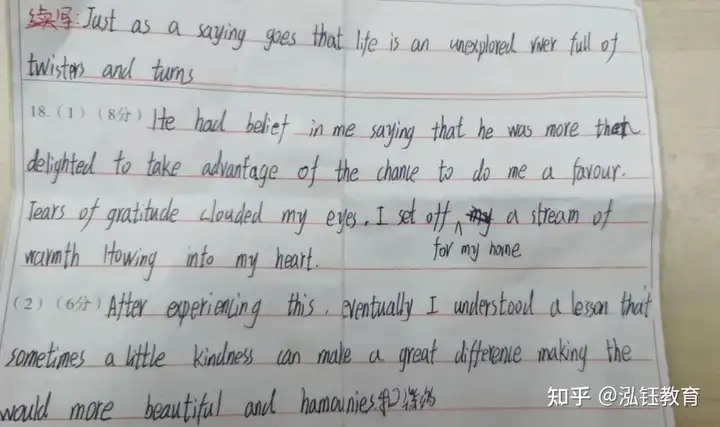 续写: Just as a saying goes that life is an unexplored river full of
twisters and turns
18.(1)(8分) He had belief in me saying that he was more than
delighted to take advantage of the chance to do me a favour.
Tears of gratitude clouded my eyes. I set off ∧ a stream of
for my home
warmth flowing into my heart.
(2)(6分) After experiencing this, eventually I understood a lesson that
sometimes a little kindness can make a great difference making the
would more beautiful and hamounies.
知乎 @泓钰教育